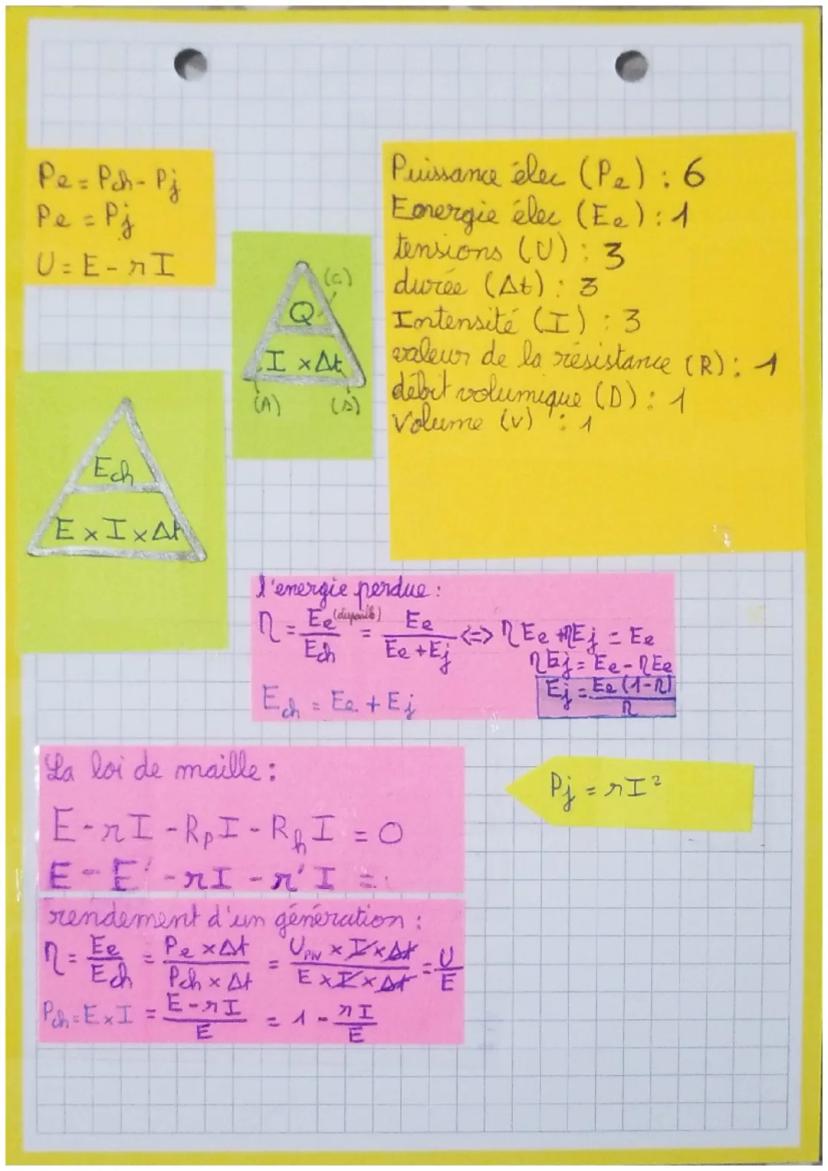 Pe = Pch - Pj
Pe = Pj
U = E - rI
(C)
Q
I × Δt
(A) (s)
Puissance élec (Pe) : 6
Eonergie élec (Ee) : 1
tensions (U) : 3
durée (Δt) : 3
Intensité (I) : 3
valeur de la résistance (R) : 1
débit volumique (D) : 1
Volume (v) : 1
Ech
E × I × Δt
l'energie perdue :
η = Ee / Ech = Ee / (Ee + Ej) <=> ηEe + ηEj = Ee
ηEj = Ee - ηEe
Ech = Ee + Ej
Ej = Ee(1-η) / η
La loi de maille :
E - rI - RpI - RhI = 0
E - E' - rI - r'I =
Pj = rI²
rendement d'un génération :
η = Ee / Ech = Pe × Δt / Pch × Δt = UPN × I × Δt / E × I × Δt = U / E
Pch = E × I = E - rI / E = 1 - rI / E